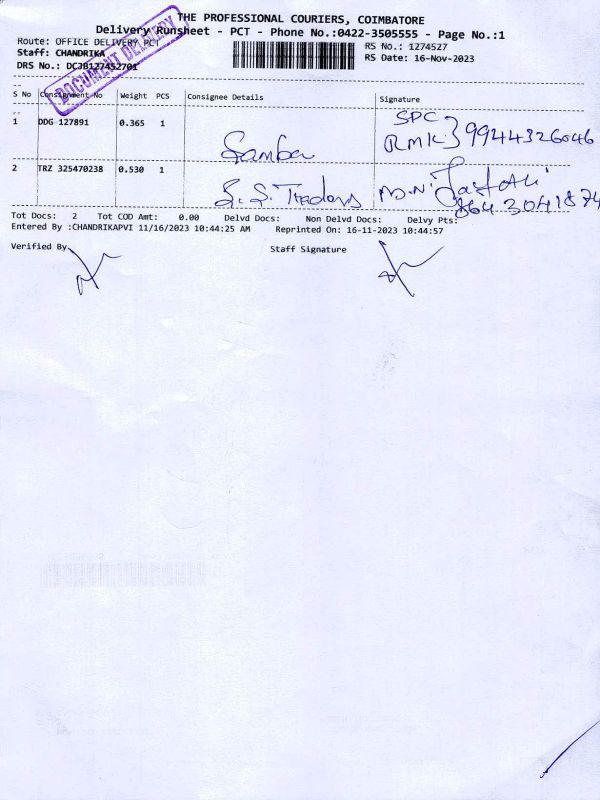 THE PROFESSIONAL COURIERS, COIMBATORE
Delivery Runsheet - PCT - Phone No.:0422-3505555 - Page No.:1
Route: OFFICE DELIVERY PCT
RS No.: 1274527
Staff: CHANDRIKA
RS Date: 16-Nov-2023
DRS No.: DCJB127452701
DOCUMENT DELIVERY
S No Consignment No Weight PCS Consignee Details Signature
1 DDG 127891 0.365 1
SPC
RMK } 9944326046
Samba
2 TRZ 325470238 0.530 1
S. S. Traders
8643041874
Tot Docs: 2 Tot COD Amt: 0.00 Delvd Docs: Non Delvd Docs: Delvy Pts:
Entered By :CHANDRIKAPVI 11/16/2023 10:44:25 AM Reprinted On: 16-11-2023 10:44:57
Verified By
Staff Signature